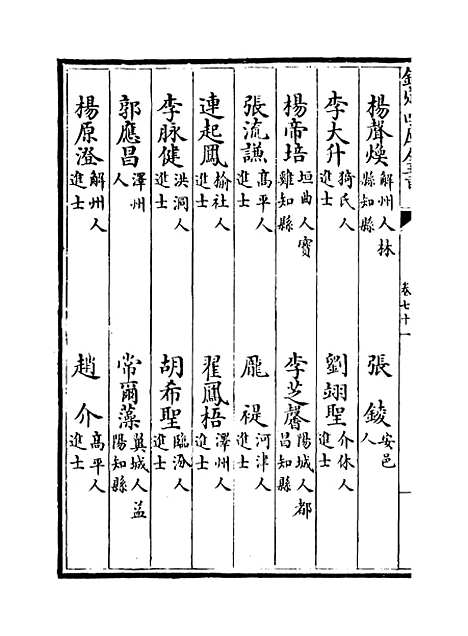 欽定四庫全書
卷七十一
楊聲煥 解州人林縣知縣
張錂 安邑人
李大升 猗氏人進士
劉翊聖 介休人進士
楊帝培 垣曲人寶雞知縣
李芝馨 陽城人都昌知縣
張流謙 高平人進士
龎禔 河津人進士
連起鳳 榆社人進士
翟鳳梧 澤州人進士
李脉健 洪洞人進士
胡希聖 臨汾人進士
郭應昌 澤州人
常爾藻 翼城人益陽知縣
楊原澄 解州人進士
趙介 高平人進士